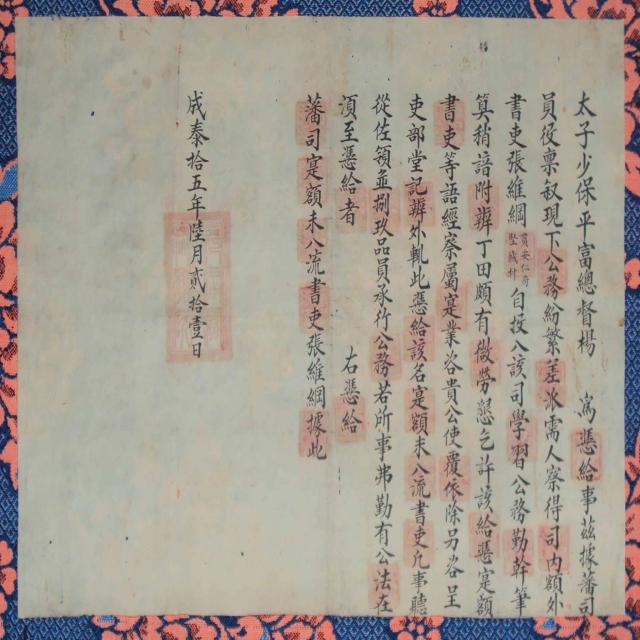 太子少保平富總督楊 為憑給事茲據藩司
員役稟叙現下公務紛繁差派需人察得司內額外
書吏張維綱貫安仁府堅城村自投入該司學習公務勤幹筆
算稍諳附辦丁田頗有微勞懇乞許該給憑寔額
書吏等語經察屬寔業咨貴公使覆依除另咨呈
吏部堂記辨外輒此憑給該名寔額未入流書吏凡事聽
從佐領並捌玖品員承行公務若所事弗勤有公法在
須至憑給者 右憑給
藩司寔額未入流書吏張維綱據此
成泰拾五年陸月貳拾壹日